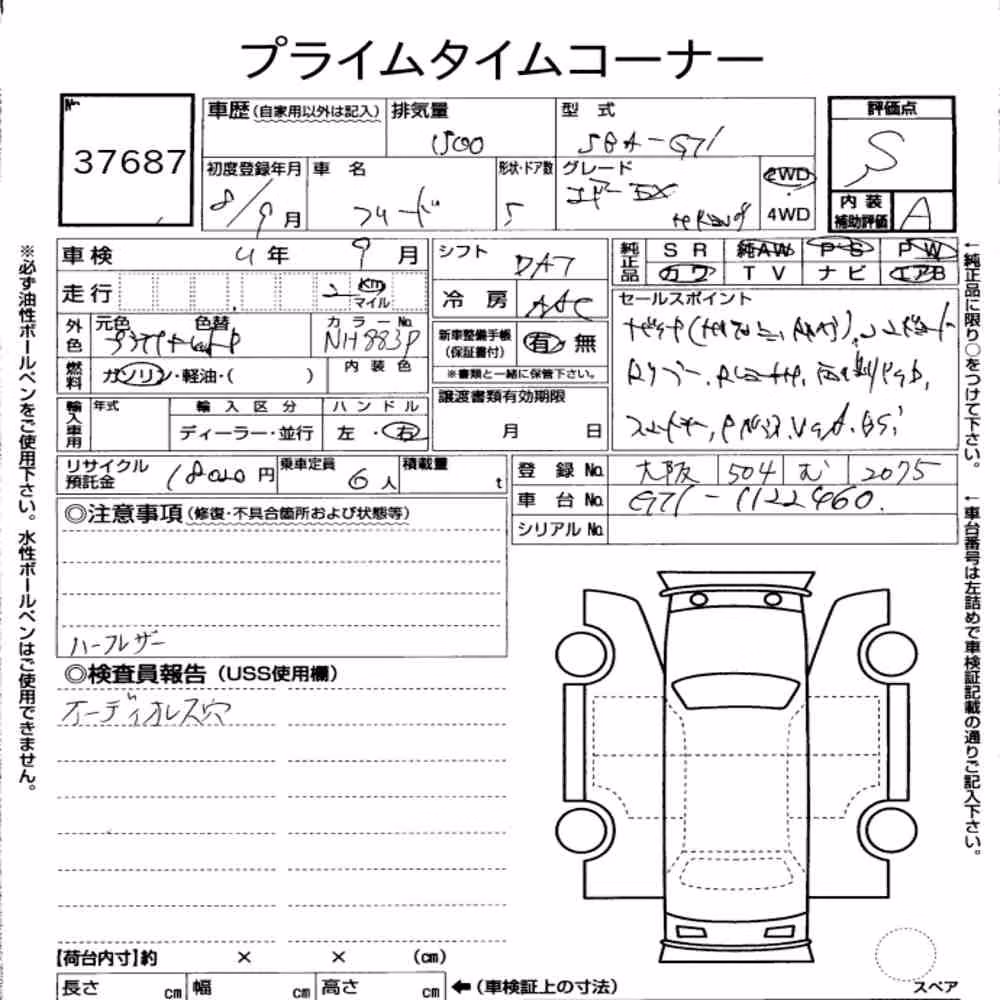 プライムタイムコーナー
No. 37687
車歴(自家用以外は記入) 排気量 1500 型式 5BA-GT1
評価点 S
初度登録年月 8/9月 車名 フリード 形状・ドア数 5 グレード エアー EX 2WD 4WD
内装補助評価 A
車検 4年 9月
シフト DAT
純正品 SR 純AW PS PW カワ TV ナビ エアB
走行 2 km マイル
冷房 AAC
セールスポイント
外色 元色 色替 カラーNo. NH883P
新車整備手帳(保証書付) 有 無
※書類と一緒に保管下さい。
燃料 ガソリン・軽油・( ) 内装色
輸入車用 年式 輸入区分 ディーラー・並行 ハンドル 左・右
譲渡書類有効期限 月 日
リサイクル預託金 18020円 乗車定員 6人 積載量 t
登録No. 大阪 504 む 2075
車台No. GT1-1122460.
シリアルNo.
◎注意事項(修復・不具合箇所および状態等)
ハーフレザー
◎検査員報告(USS使用欄)
オーディオレス穴
【荷台内寸】約 × × (cm)
長さ cm 幅 cm 高さ cm ←(車検証上の寸法)
スペア
※必ず油性ボールペンをご使用下さい。水性ボールペンはご使用できません。
←純正品に限り○をつけて下さい。
←車台番号は左詰めで車検証記載の通りご記入下さい。